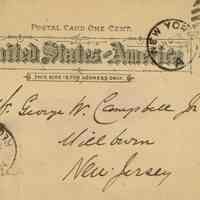 POSTAL CARD ONE CENT.
United States of America
THIS SIDE IS FOR ADDRESS ONLY.
NEW YORK
George W. Campbell Jr
Millburn
New Jersey